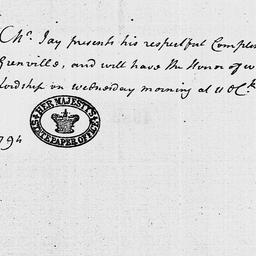 Mr. Jay presents his respectful Complem
Grenville, and will have the Honor of w
Lordship on Wednesday morning at 11 OCk
HER MAJESTY'S
STATE PAPER OFFICE
794